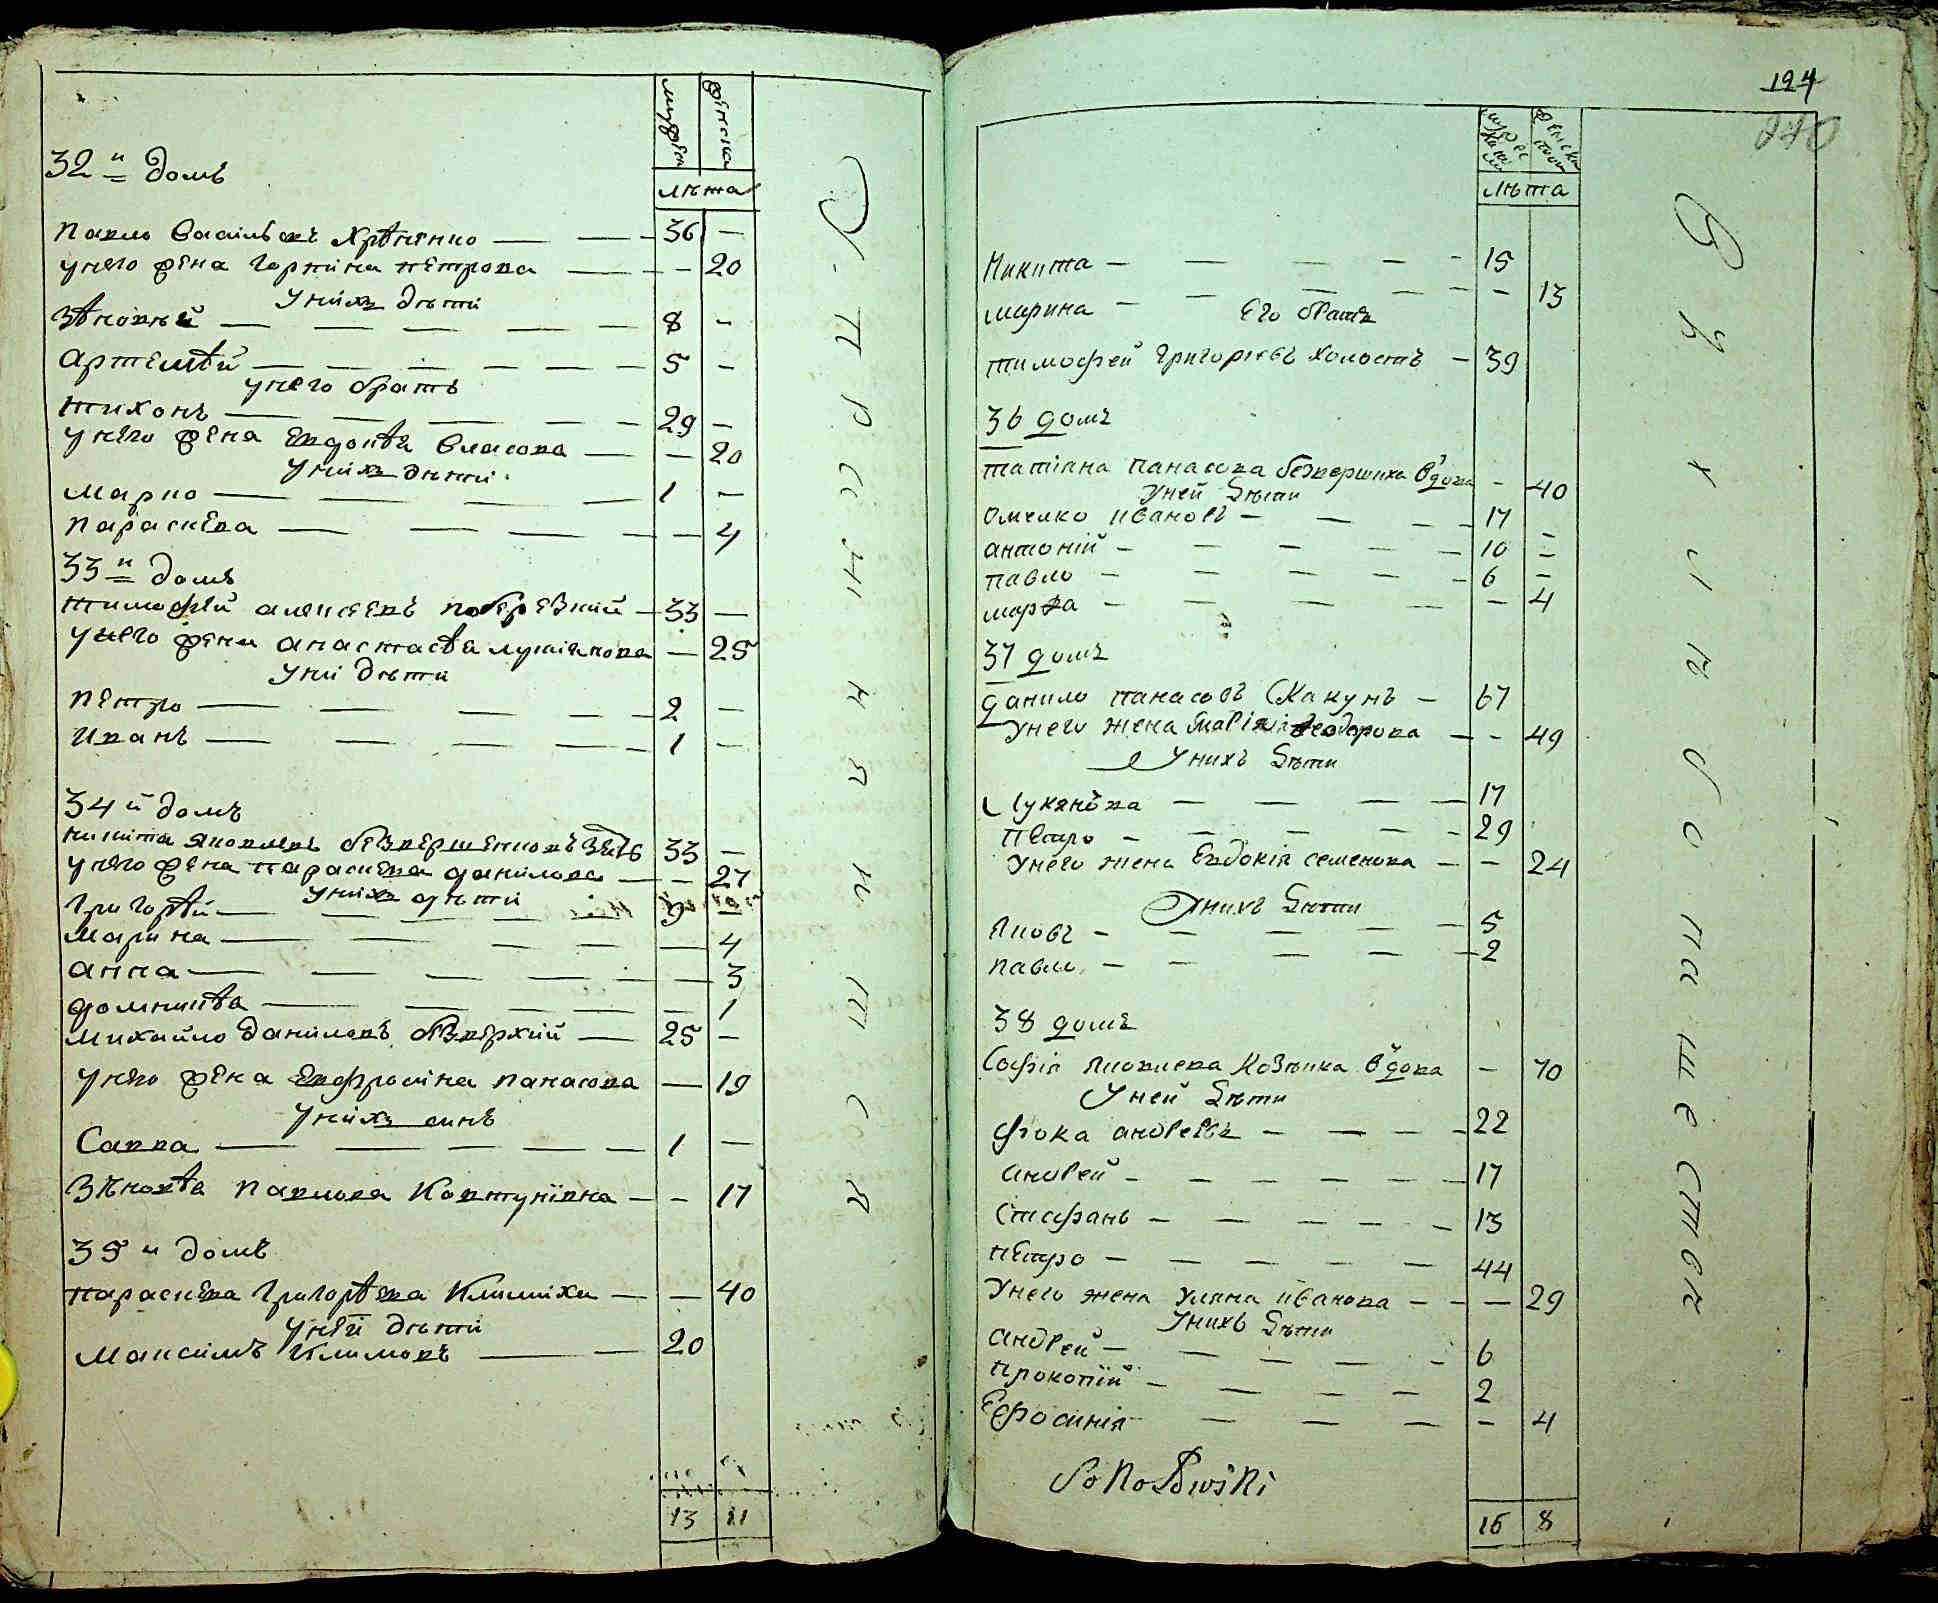 мужеска
женска
лѣта
32 й домъ
Павло Василевъ Хрѣненко — 36 —
у него жена Горпина Петрова — — 20
у них дѣти
Зѣновѣй — 8 —
Артемѣй — 5 —
у него братъ
Тихонъ — 29 —
у него жена Евдокѣя Власова — — 20
у них дѣти
Марко — 1 —
Параскева — — 4
33 й домъ
Тимофѣй Алексеевъ Побережний — 33 —
у него жена Анастасѣя Лукіянова — 25
у ни дѣти
Петро — 2 —
Иванъ — 1 —
34 й домъ
Никита Яковлевъ Безвершенковъ зять 33 —
у него жена Параскева Данилова — — 27
у них дѣти
Григорѣй — 9 —
Марина — — 4
Анна — — 3
Домникѣя — — 1
Михайло Данилевъ Безверхий — 25 —
у него жена Евфросина Панасова — 19
у них синъ
Савва — 1 —
Зѣновѣя Павлова Ковтунівна — - 17
35 й домъ
Параскева Григорѣева Климиха — — 40
у ней дѣти
Максимъ Климовъ — 20
13 11
124
270
лѣта
Никита — 15
Марина — - 13
Его братъ
Тимофей Григориевъ холостъ — 39
36 домъ
Татіяна Панасова Безвершиха вдова - 40
у ней дѣти
Омелко Ивановъ — 17 -
Антоній — 10 -
Павло — 6 -
Марѳа — - 4
37 домъ
Данило Панасовъ Скакунъ — 67
у него жена Марія Феодорова — - 49
у нихъ дѣти
Лукянѣка — 17
Петро — 29
у него жена Евдокія Семенова — - 24
у нихъ дѣти
Яковъ — 5
Павло — 2
38 домъ
Софія Яковлева Козѣика вдова - 70
у ней дѣти
Фока Андреевъ — 22
Андрей — 17
Стефанъ — 13
Петро — 44
у него жена Уляна Иванова — — 29
у нихъ дѣти
Андрей — 6
Прокопій — 2
Ефросинія — - 4
Sokołowski
16 8